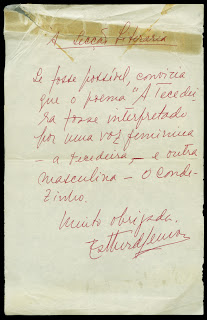 À Secção Literária
Se fosse possível, convizia
que o poema "A Tecedei-
ra fosse interpretado
por uma voz feminina
– a Tecedeira – e outra
masculina – O Conde-
Zinho.
Muito obrigada.
Esther de Lemos